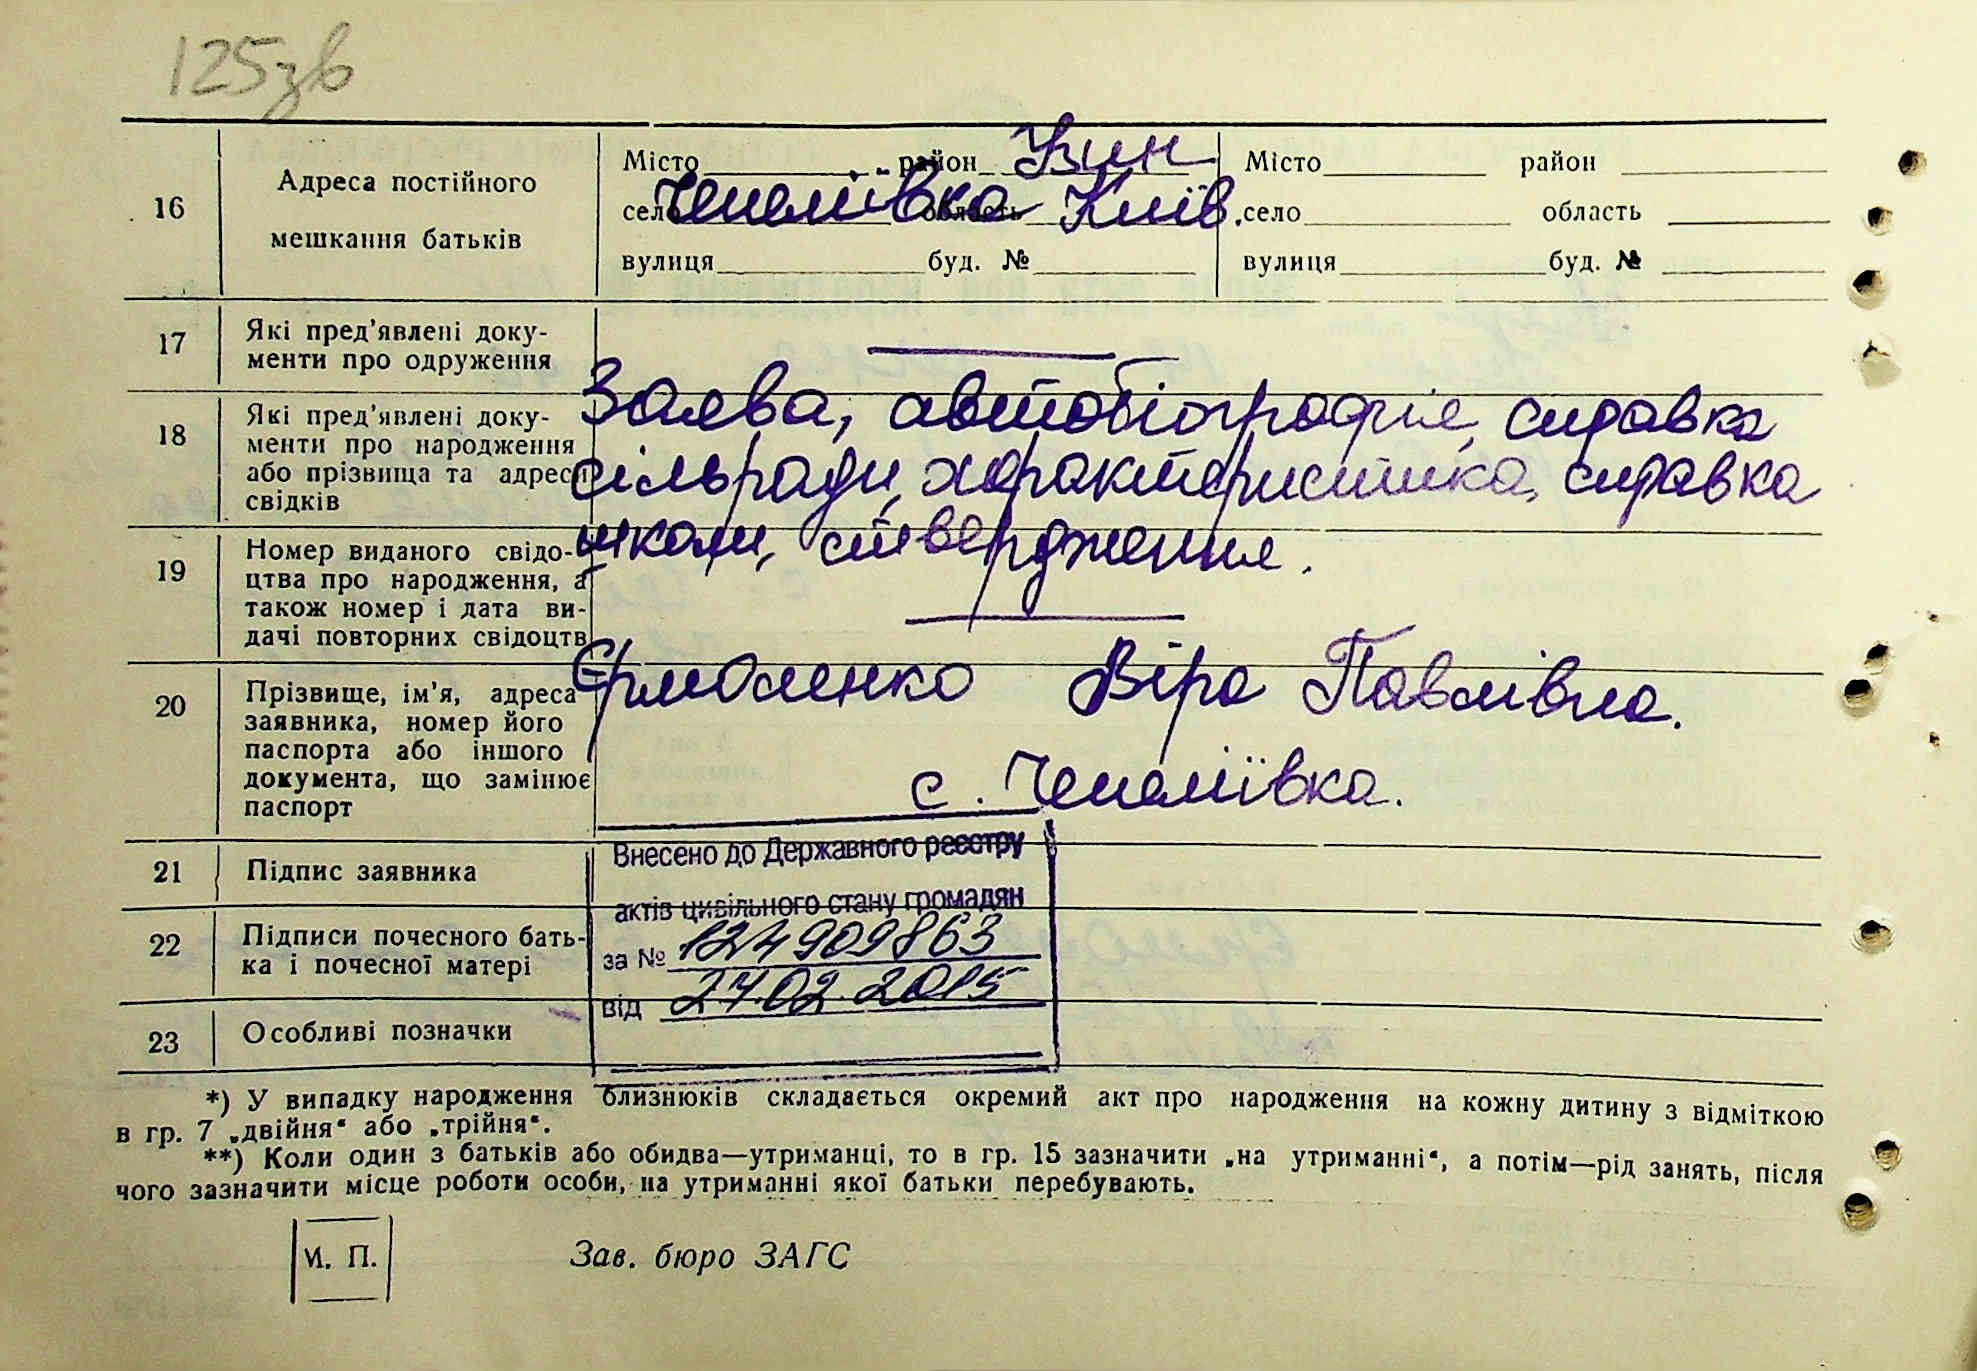 125зв
16 Адреса постійного мешкання батьків
Місто район Узин Місто район
село Чепеліївка область Київ. село область
вулиця буд. № вулиця буд. №
17 Які пред'явлені доку-
менти про одруження
18 Які пред'явлені доку-
менти про народження
або прізвища та адреси
свідків
Заява, автобіографія, справка
сільради, характеристика, справка
школи, ствердження.
19 Номер виданого свідо-
цтва про народження, а
також номер і дата ви-
дачі повторних свідоцтв
20 Прізвище, ім'я, адреса
заявника, номер його
паспорта або іншого
документа, що замінює
паспорт
Єрмоленко Віра Павлівна.
с. Чепеліївка.
21 Підпис заявника
22 Підписи почесного бать-
ка і почесної матері
23 Особливі позначки
Внесено до Державного реєстру
актів цивільного стану громадян
за № 124909863
від 27.02.2015
*) У випадку народження близнюків складається окремий акт про народження на кожну дитину з відміткою
в гр. 7 „двійня“ або „трійня“.
**) Коли один з батьків або обидва—утриманці, то в гр. 15 зазначити „на утриманні“, а потім—рід занять, після
чого зазначити місце роботи особи, на утриманні якої батьки перебувають.
М. П. Зав. бюро ЗАГС